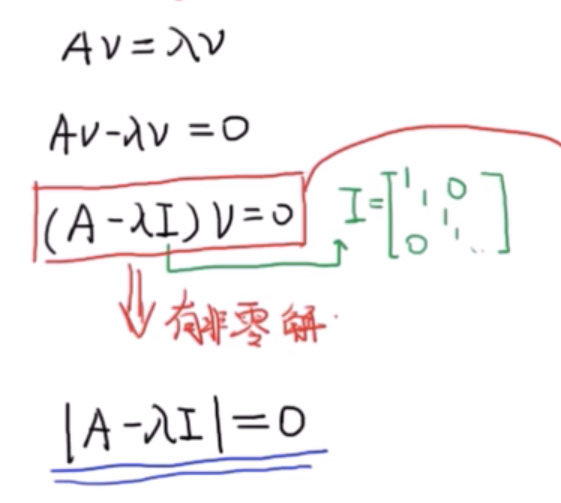 Av=λv
Av-λv=0
(A-λI)v=0
I=[1 1 0 1 0 1 ..]
有非零解.
|A-λI|=0